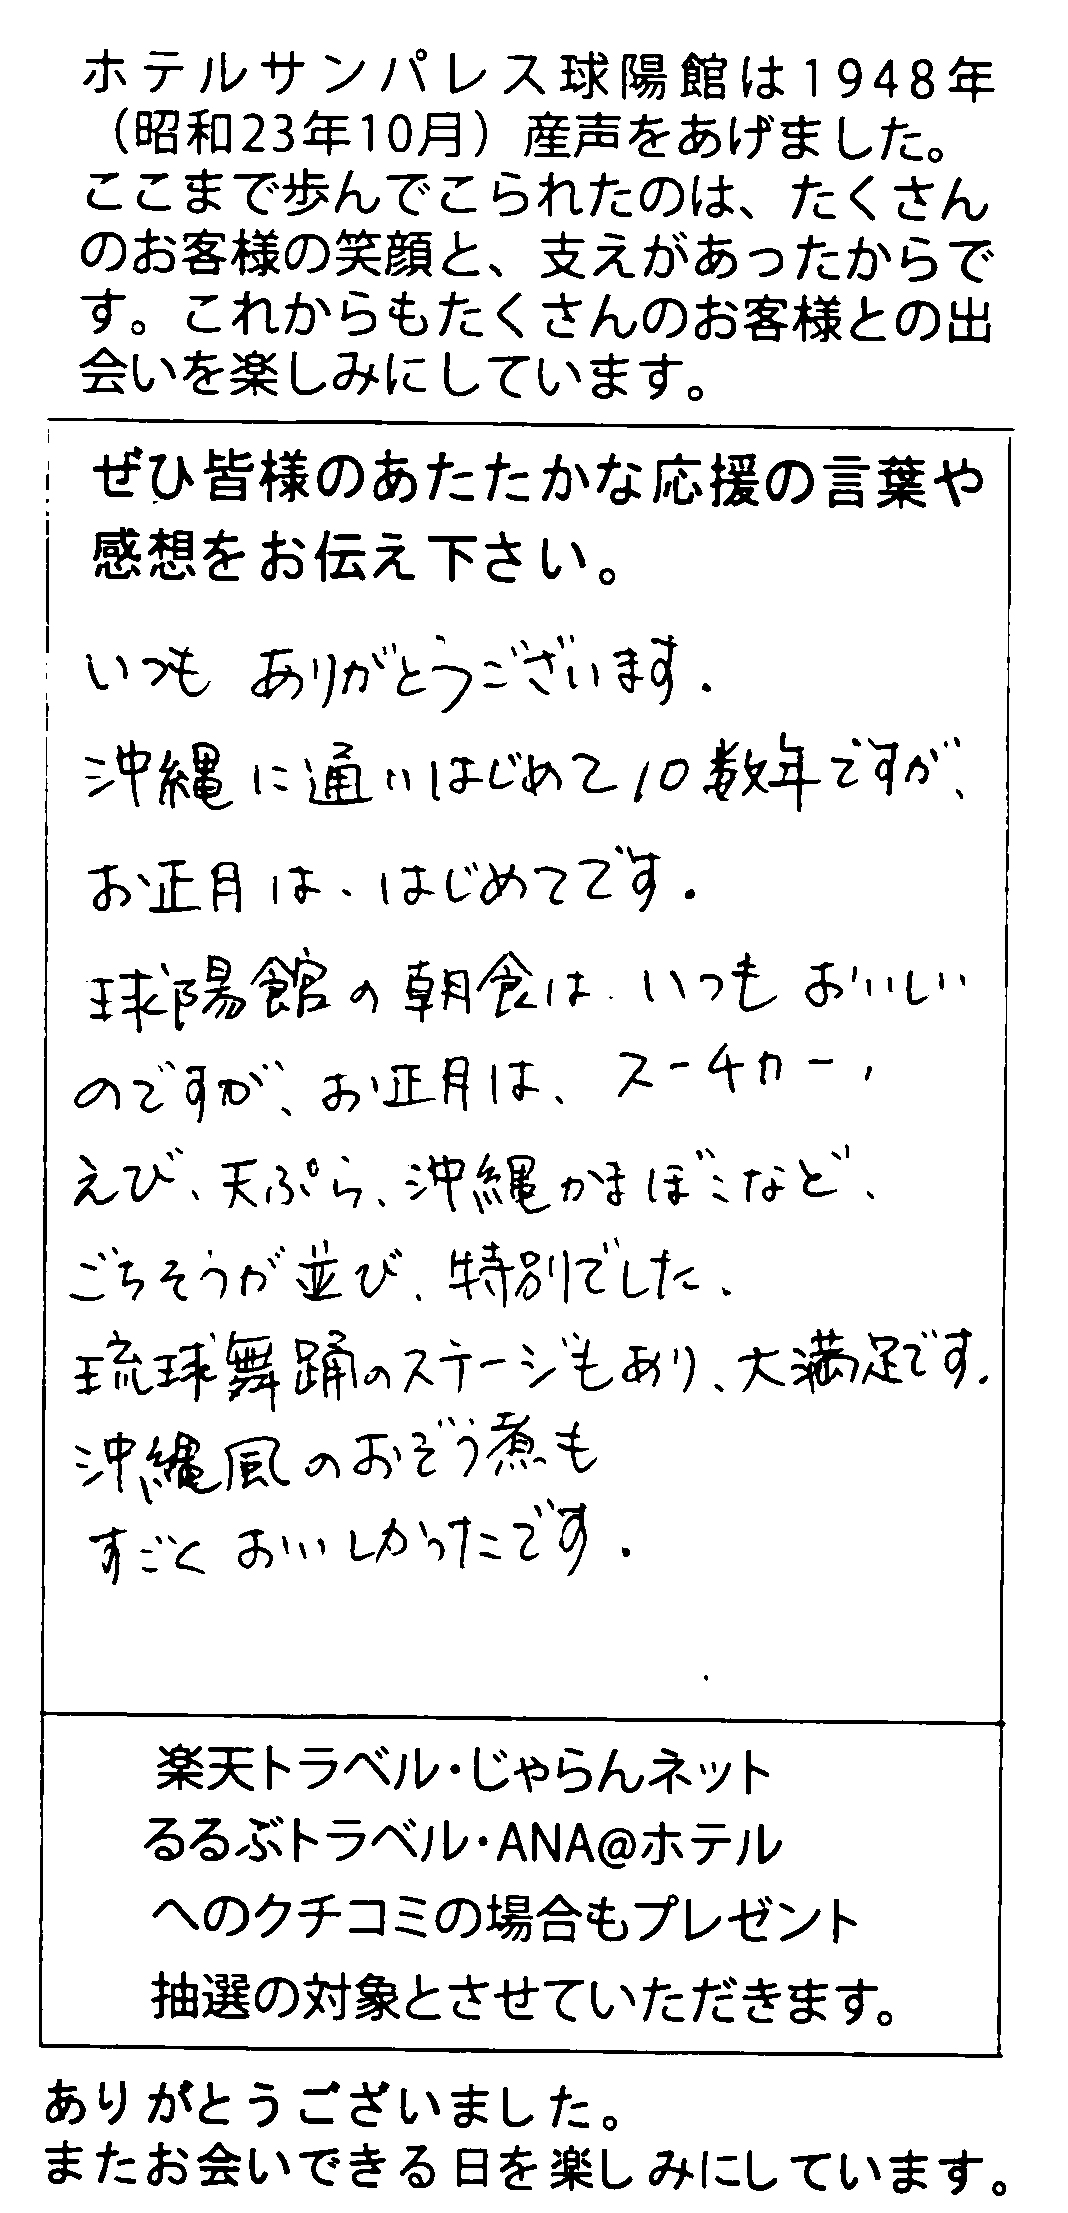 ホテルサンパレス球陽館は1948年
（昭和23年10月）産声をあげました。
ここまで歩んでこられたのは、たくさん
のお客様の笑顔と、支えがあったからで
す。これからもたくさんのお客様との出
会いを楽しみにしています。
ぜひ皆様のあたたかな応援の言葉や
感想をお伝え下さい。
いつも ありがとうございます.
沖縄に通いはじめて10数年ですが、
お正月は、はじめてです.
球陽館の朝食は、いつも おいしい
のですが、お正月は、スーチカー,
えび、天ぷら、沖縄かまぼこなど、
ごちそうが並び、特別でした.
琉球舞踊のステージもあり、大満足です.
沖縄風のおぞう煮も
すごく おいしかったです.
楽天トラベル・じゃらんネット
るるぶトラベル・ANA@ホテル
へのクチコミの場合もプレゼント
抽選の対象とさせていただきます。
ありがとうございました。
またお会いできる日を楽しみにしています。